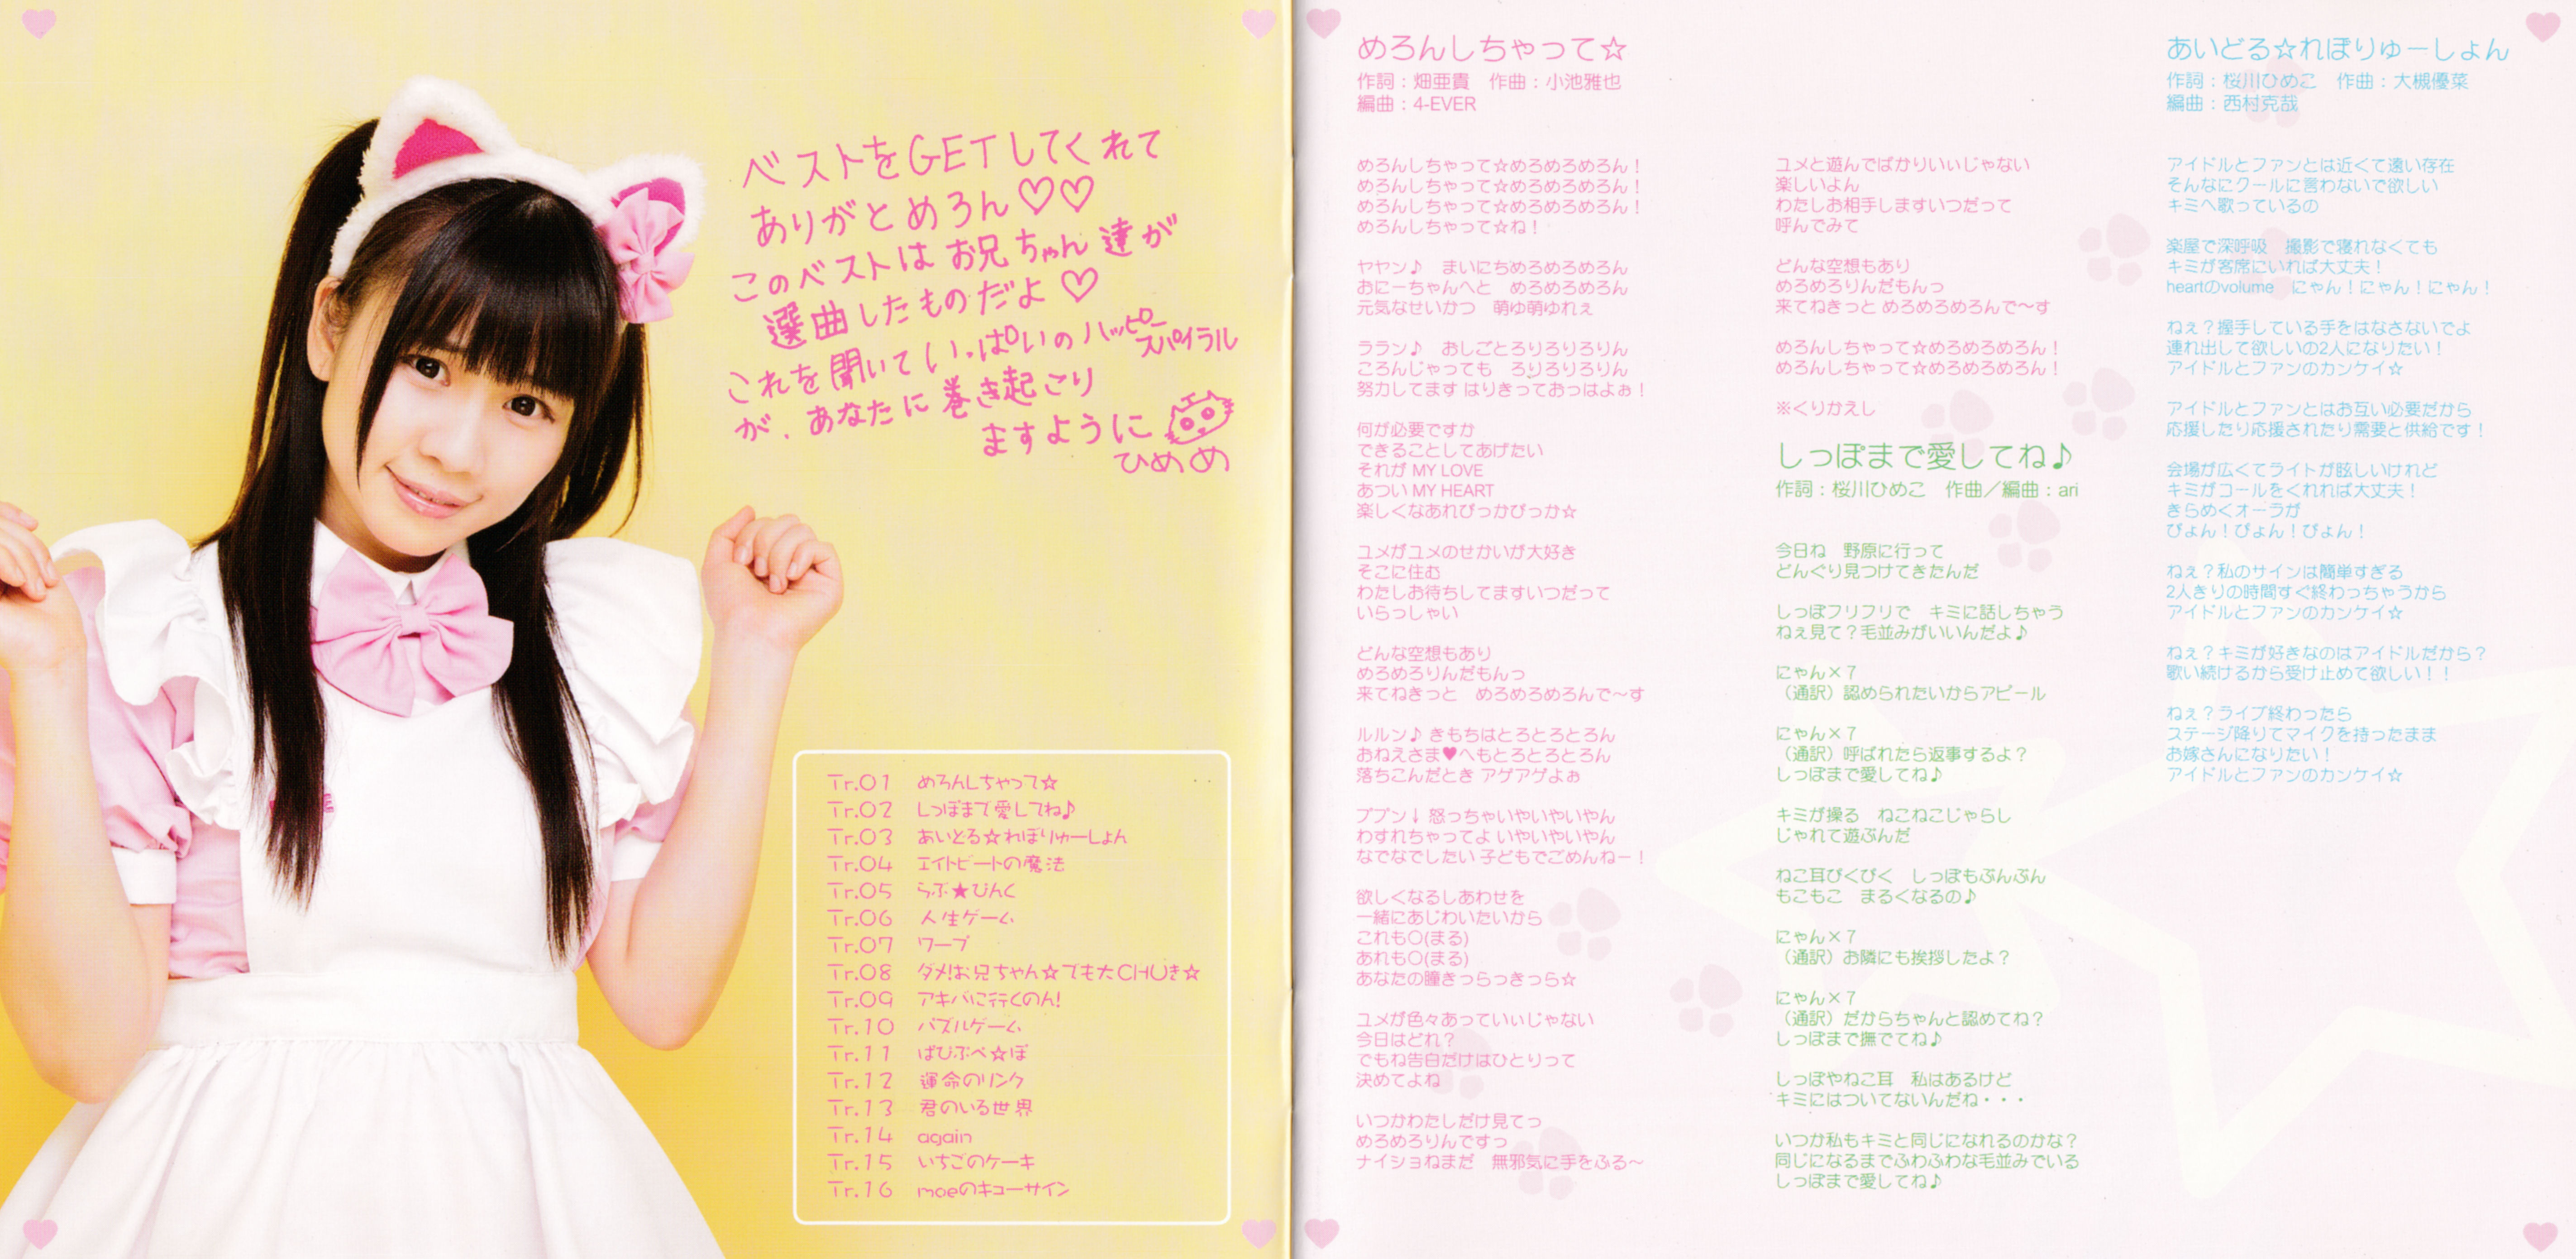 ベストをGETしてくれて
ありがとめろん♡♡
このベストはお兄ちゃん達が
選曲したものだよ♡
これを聞いていっぱいのハッピー
スパイラル
が、あなたに巻き起こり
ますように
ひめめ
Tr.01 めろんしちゃって☆
Tr.02 しっぽまで愛してね♪
Tr.03 あいどる☆れぼりゅーしょん
Tr.04 エイトビートの魔法
Tr.05 らぶ★ぴんく
Tr.06 人生ゲーム
Tr.07 ワープ
Tr.08 ダメ!お兄ちゃん☆でも大CHUき☆
Tr.09 アキバに行くのん!
Tr.10 パズルゲーム
Tr.11 ぱぴぷぺ☆ぽ
Tr.12 運命のリンク
Tr.13 君のいる世界
Tr.14 again
Tr.15 いちごのケーキ
Tr.16 moeのキューサイン
めろんしちゃって☆
作詞：畑亜貴　作曲：小池雅也
編曲：4-EVER
めろんしちゃって☆めろめろめろん！
めろんしちゃって☆めろめろめろん！
めろんしちゃって☆めろめろめろん！
めろんしちゃって☆ね！
ヤヤン♪　まいにちめろめろめろん
おにーちゃんへと　めろめろめろん
元気なせいかつ　萌ゆ萌ゆれぇ
ララン♪　おしごとろりろりろりん
ころんじゃっても　ろりろりろりん
努力してます はりきっておっはよぉ！
何が必要ですか
できることしてあげたい
それが MY LOVE
あつい MY HEART
楽しくなあれぴっかぴっか☆
ユメがユメのせかいが大好き
そこに住む
わたしお待ちしてますいつだって
いらっしゃい
どんな空想もあり
めろめろりんだもんっ
来てねきっと　めろめろめろんで～す
ルルン♪ きもちはとろとろとろん
おねえさま♥へもとろとろとろん
落ちこんだとき アゲアゲよぉ
ププン↓ 怒っちゃいやいやいやん
わすれちゃってよ いやいやいやん
なでなでしたい 子どもでごめんねー！
欲しくなるしあわせを
一緒にあじわいたいから
これも○(まる)
あれも○(まる)
あなたの瞳きっらっきっら☆
ユメが色々あっていぃじゃない
今日はどれ？
でもね告白だけはひとりって
決めてよね
いつかわたしだけ見てっ
めろめろりんですっ
ナイショねまだ　無邪気に手をふる～
ユメと遊んでばかりいぃじゃない
楽しいよん
わたしお相手しますいつだって
呼んでみて
どんな空想もあり
めろめろりんだもんっ
来てねきっと めろめろめろんで～す
めろんしちゃって☆めろめろめろん！
めろんしちゃって☆めろめろめろん！
※くりかえし
しっぽまで愛してね♪
作詞：桜川ひめこ　作曲／編曲：ari
今日ね　野原に行って
どんぐり見つけてきたんだ
しっぽフリフリで　キミに話しちゃう
ねぇ見て？毛並みがいいんだよ♪
にゃん×７
（通訳）認められたいからアピール
にゃん×７
（通訳）呼ばれたら返事するよ？
しっぽまで愛してね♪
キミが操る　ねこねこじゃらし
じゃれて遊ぶんだ
ねこ耳ぴくぴく　しっぽもぶんぶん
もこもこ　まるくなるの♪
にゃん×７
（通訳）お隣にも挨拶したよ？
にゃん×７
（通訳）だからちゃんと認めてね？
しっぽまで撫でてね♪
しっぽやねこ耳　私はあるけど
キミにはついてないんだね・・・
いつか私もキミと同じになれるのかな？
同じになるまでふわふわな毛並みでいる
しっぽまで愛してね♪
あいどる☆れぼりゅーしょん
作詞：桜川ひめこ　作曲：大槻優菜
編曲：西村克哉
アイドルとファンとは近くて遠い存在
そんなにクールに言わないで欲しい
キミへ歌っているの
楽屋で深呼吸　撮影で寝れなくても
キミが客席にいれば大丈夫！
heartのvolume　にゃん！にゃん！にゃん！
ねぇ？握手している手をはなさないでよ
連れ出して欲しいの2人になりたい！
アイドルとファンのカンケイ☆
アイドルとファンとはお互い必要だから
応援したり応援されたり需要と供給です！
会場が広くてライトが眩しいけれど
キミがコールをくれれば大丈夫！
きらめくオーラが
ぴょん！ぴょん！ぴょん！
ねぇ？私のサインは簡単すぎる
2人きりの時間すぐ終わっちゃうから
アイドルとファンのカンケイ☆
ねぇ？キミが好きなのはアイドルだから？
歌い続けるから受け止めて欲しい！！
ねぇ？ライブ終わったら
ステージ降りてマイクを持ったまま
お嫁さんになりたい！
アイドルとファンのカンケイ☆